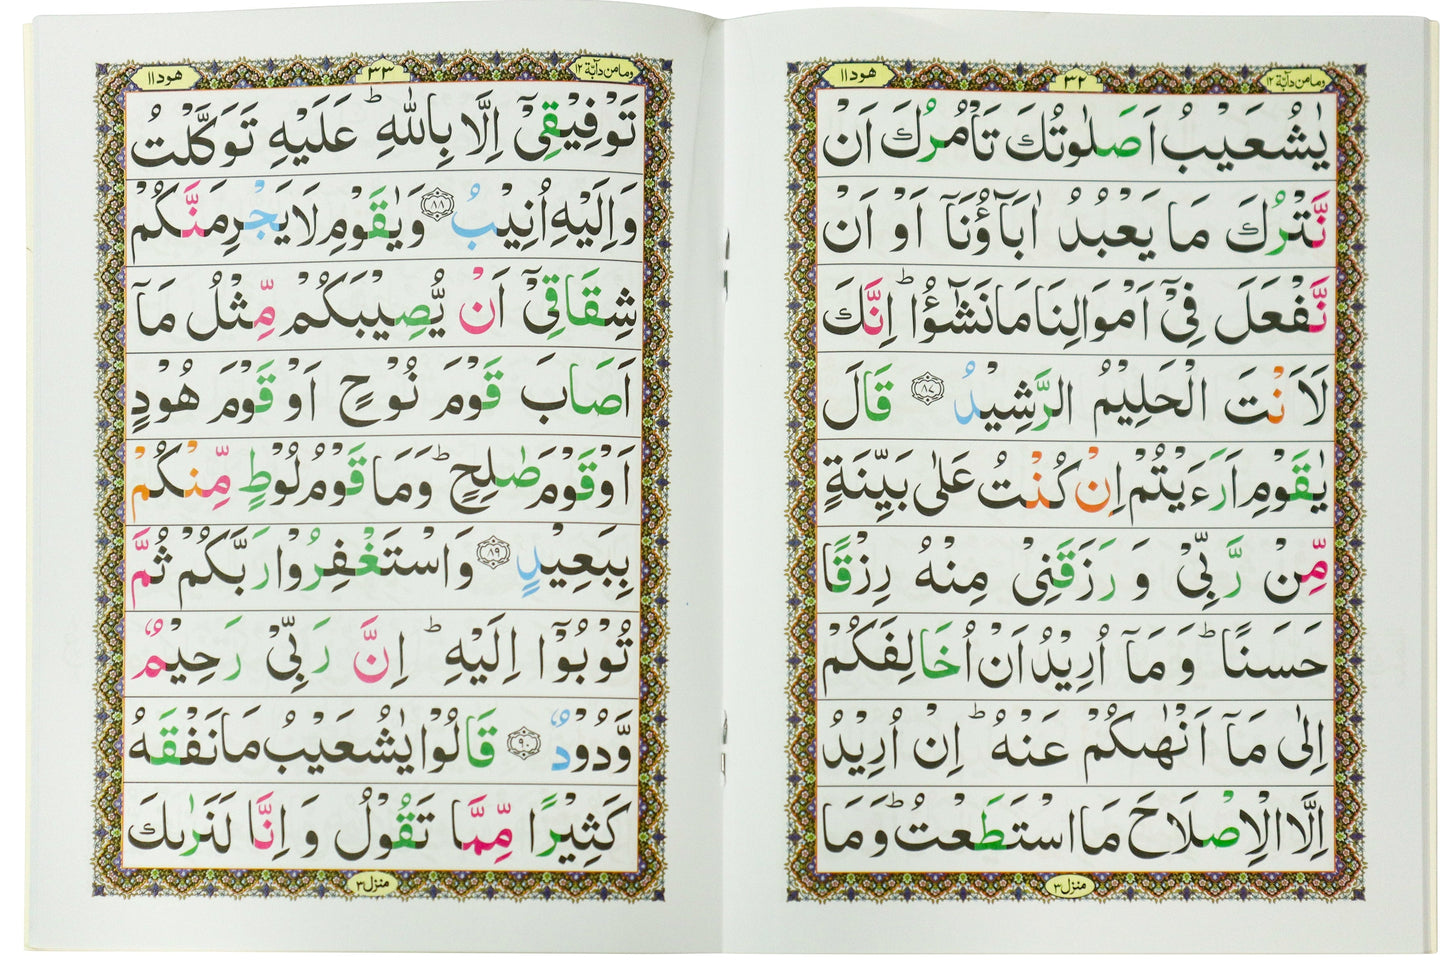 وما من دآبة ١٢
٣٢
هود ١١
يٰشُعَيْبُ اَصَلٰوتُكَ تَاْمُرُكَ اَنْ
نَّتْرُكَ مَا يَعْبُدُ اٰبَآؤُنَآ اَوْ اَنْ
نَّفْعَلَ فِيْٓ اَمْوَالِنَا مَا نَشٰٓؤُا ؕ اِنَّكَ
لَاَنْتَ الْحَلِيْمُ الرَّشِيْدُ ۝٨٧ قَالَ
يٰقَوْمِ اَرَءَيْتُمْ اِنْ كُنْتُ عَلٰى بَيِّنَةٍ
مِّنْ رَّبِّيْ وَ رَزَقَنِيْ مِنْهُ رِزْقًا
حَسَنًا ؕ وَ مَآ اُرِيْدُ اَنْ اُخَالِفَكُمْ
اِلٰى مَآ اَنْهٰىكُمْ عَنْهُ ؕ اِنْ اُرِيْدُ
اِلَّا الْاِصْلَاحَ مَا اسْتَطَعْتُ ؕ وَ مَا
منزل ٣
وما من دآبة ١٢
٣٣
هود ١١
تَوْفِيْقِيْٓ اِلَّا بِاللّٰهِ ؕ عَلَيْهِ تَوَكَّلْتُ
وَ اِلَيْهِ اُنِيْبُ ۝٨٨ وَ يٰقَوْمِ لَا يَجْرِمَنَّكُمْ
شِقَاقِيْٓ اَنْ يُّصِيْبَكُمْ مِّثْلُ مَآ
اَصَابَ قَوْمَ نُوْحٍ اَوْ قَوْمَ هُوْدٍ
اَوْ قَوْمَ صٰلِحٍ ؕ وَمَا قَوْمُ لُوْطٍ مِّنْكُمْ
بِبَعِيْدٍ ۝٨٩ وَ اسْتَغْفِرُوْا رَبَّكُمْ ثُمَّ
تُوْبُوْٓا اِلَيْهِ ؕ اِنَّ رَبِّيْ رَحِيْمٌ
وَّدُوْدٌ ۝٩٠ قَالُوْا يٰشُعَيْبُ مَا نَفْقَهُ
كَثِيْرًا مِّمَّا تَقُوْلُ وَ اِنَّا لَنَرٰىكَ
منزل ٣